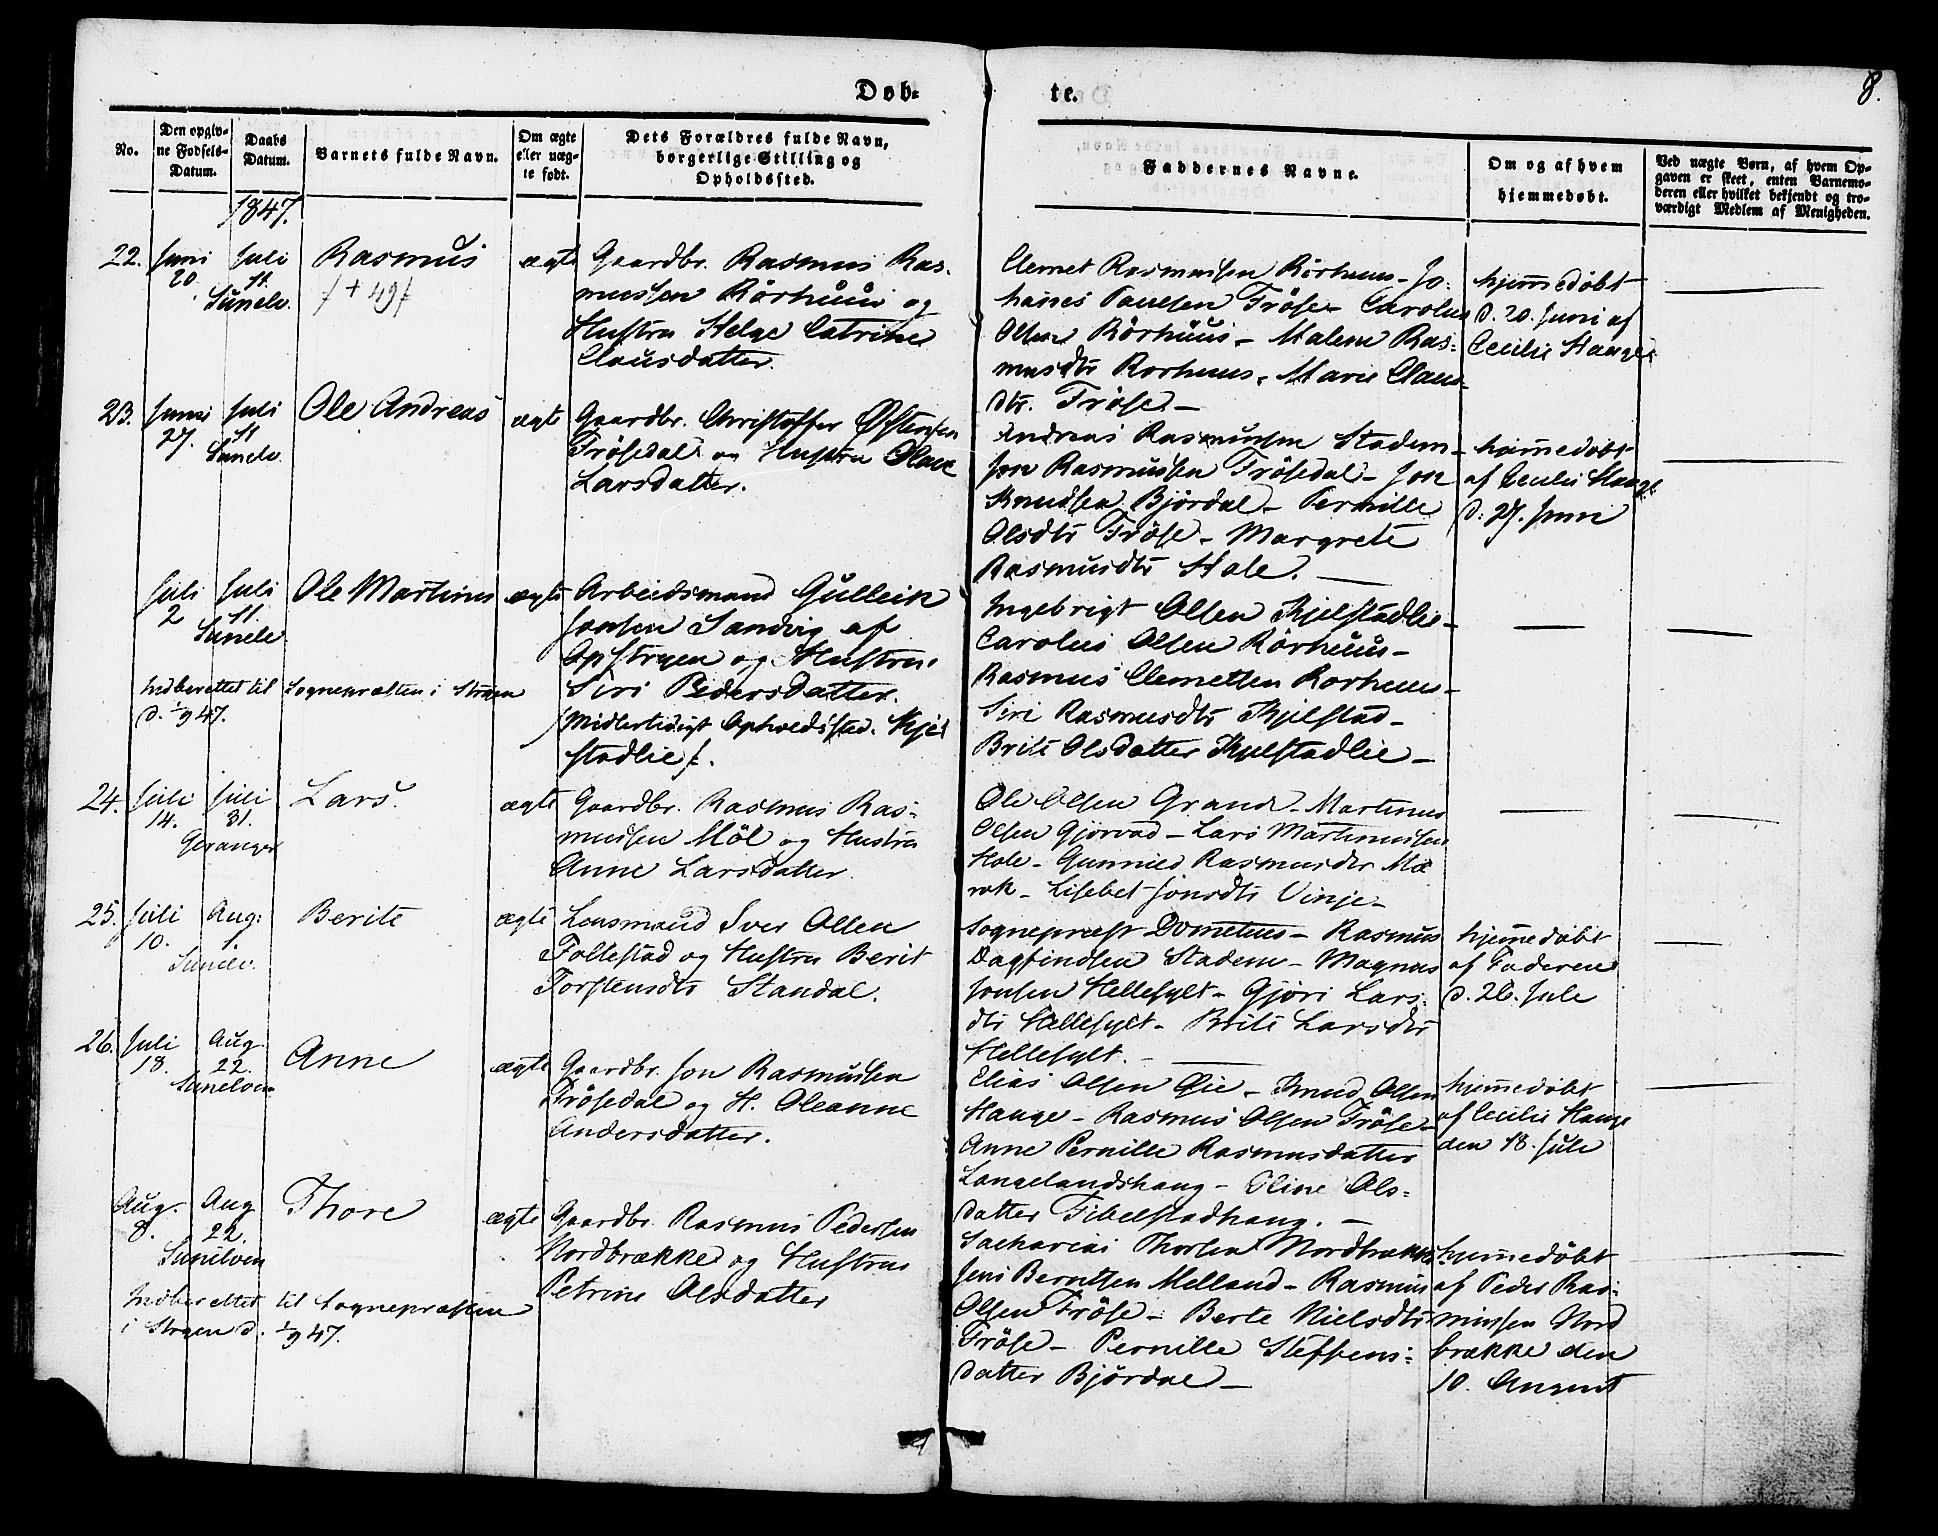 Døb-
te.
8.
No.
Den opgiv-
ne Fødsels-
Datum.
Daabs
Datum.
Barnets fulde Navn.
Om ægte
eller uæg-
te født.
Dets Forældres fulde Navn,
borgerlige Stilling og
Opholdssted.
Faddernes Navne.
Om og af hvem
hjemmedøbt.
Ved uægte Børn, af hvem Op-
gaven er skeet, enten Barnemo-
deren eller hvilket bekjendt og tro-
værdigt Medlem af Menigheden.
1847.
22.
Juni
20
Juli
11.
Sunelv.
Rasmus
/ + 49 /
ægte
Gaardbr. Rasmus Ras-
mussen Rörhuus og
Hustru Helge Catrine
Clausdatter.
Clemet Rasmussen Rörhuus - Jo-
hanes Paulsen Fröse - Carolus
Olsen Rörhuus - Malene Ras-
musdtr Rorhuus - Marie Claus-
dtr. Fröse -
hjemedøbt
d. 20. Juni af
Cecilie Hauge
23.
Juni
27.
Juli
11
Sunelv.
Ole Andreas
ægte
Gaardbr. Christoffer Østensen
Frösedal og Hustru Olave
Larsdatter.
Andreas Rasmussen Stadem -
Jon Rasmussen Frösedal - Jon
Knudsen Björdal - Pernille
Olsdtr Fröse - Margrete
Rasmusdtr Hole.
hjemedøbt
af Cecilie Hauge
d. 27. Juni
Juli
2
Juli
11.
Sunelv
Ole Martinus
ægte
Arbeidsmand Gulleik
Jonsen Sandvig af
Opstryen og Hustru
Siri Pedersdatter.
/Midlertidigt Opholdssted. Kjel
stadlie/.
Indberettet til Sognepræsten i Stryen
d. 1/9 47.
Ingebrigt Olsen Kjelstadlie -
Carolus Olsen Rörhuus -
Rasmus Clemetsen Rorhuus -
Siri Rasmusdtr Kjelstad -
Brite Olsdatter Kjelstadlie -
24.
Juli
14.
Juli
31.
Geranger
Lars.
ægte
Gaardbr. Rasmus Ras-
mussen Möl og Hustru
Anne Larsdatter.
Ole Olsen Grande - Martinus
Olsen Gjörvad - Lars Martinussen
Hole - Gunnild Rasmusdtr Mæ
rok - Lisebet Jonsdtr Vinje -
25.
Juli
10.
Aug:
1.
Sunelv.
Berite
ægte
Lensmand Iver Olsen
Follestad og Hustru Berit
Torstensdtr Standal.
Sognepræst Dometius - Rasmus
Dagfindsen Stadem - Magnus
Jonsen Hellesylt - Gjöri Lars-
dtr Hellesylt - Brite Larsdtr
Hellesylt. -
hjemedøbt
af Faderen
d. 26. Juli
26.
Juli
18.
Aug.
22.
Sunelven
Anne
ægte
Gaardbr. Jon Rasmussen
Frösedal og H. Oleanne
Andersdatter.
Elias Olsen Øie - Knud Olsen
Hauge - Rasmus Olsen Fröse -
Anne Pernille Rasmusdatter
Langelandshaug - Eline Ols-
datter Fibelstadhaug. -
hjemedøbt
af Cecilie Hauge
den 18. Juli
Aug.
8.
Aug
22.
Sunelven
Thore
ægte
Gaardbr. Rasmus Pedersen
Nordbrække og Hustru
Petrine Olsdatter
Indberettet til Sognepræsten
i Stryen d. 1/9 47.
Sacharias Thorsen Nordbrække
Jens Berntsen Melland - Rasmus
Olsen Fröse - Berte Nielsdtr
Fröse - Pernille Steffens-
datter Björdal -
hjemedøbt
af Peder Ras-
mussen Nord
brække den
10. August